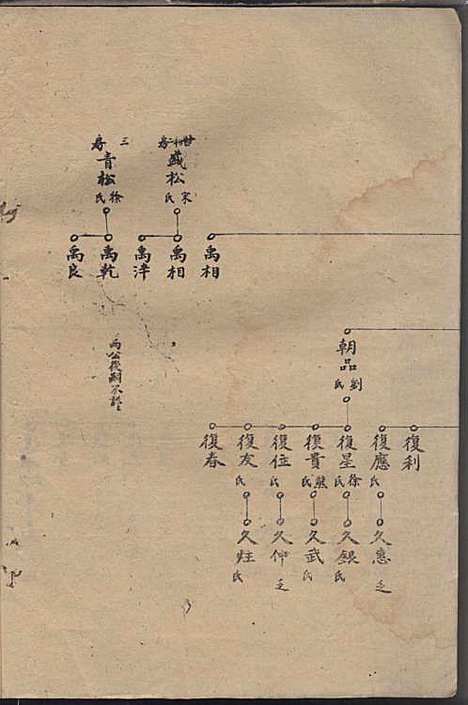 禹相
盛松
宋氏
禹相
禹洋
三房
青松
徐氏
禹乾
禹良
朝品
劉氏
復利
復應
氏
久惠
乏
復星
徐氏
久銀
氏
復貴
熊氏
久武
氏
復位
氏
久仲
乏
復友
氏
久往
氏
復春